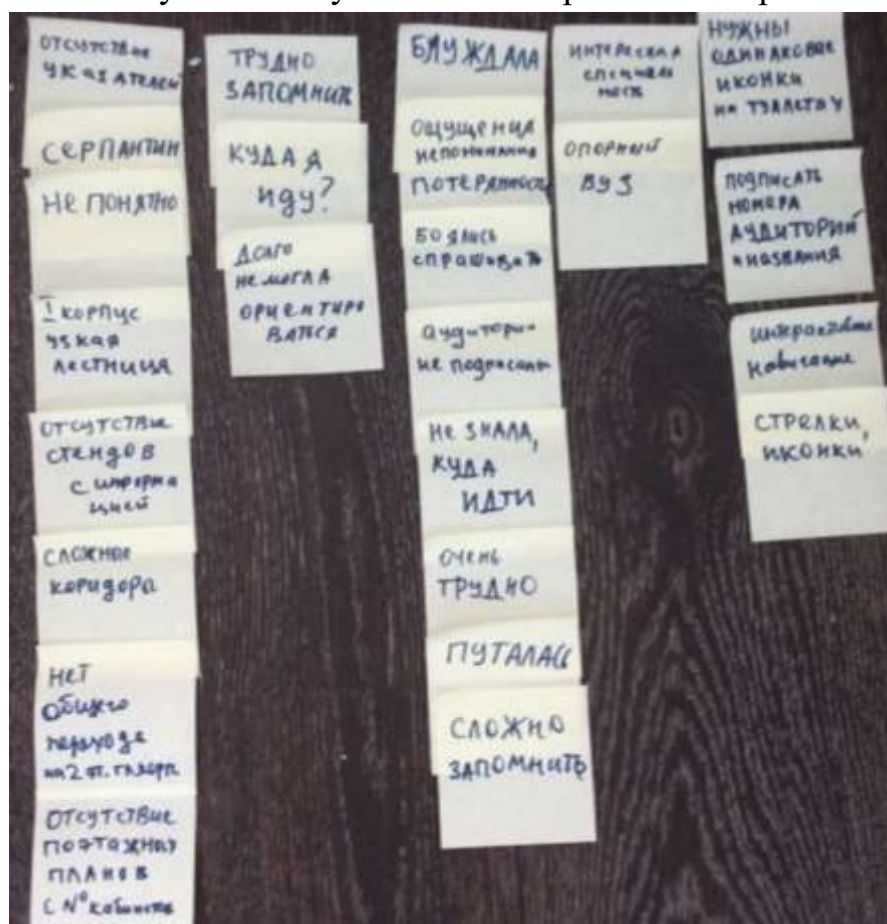 ОТСУТСТВИЕ
УКАЗАТЕЛЕЙ
СЕРПАНТИН
НЕ ПОНЯТНО
I корпус
узкая
лестница
ОТСУТСТВИЕ
СТЕНДОВ
с информа
цией
СЛОЖНЫЕ
коридора
НЕТ
общего
перехода
на 2 эт.
ОТСУТСТВИЕ
ПОЭТАЖНЫХ
ПЛАНОВ
С № кабинета
ТРУДНО
ЗАПОМНИТЬ
КУДА Я
ИДУ?
ДОЛГО
НЕ МОГЛА
ОРИЕНТИРО
ВАТЬСЯ
БЛУЖДАЛА
ОЩУЩЕНИЯ
непонимания
ПОТЕРЯННОСТЬ
БОЯЛИСЬ
СПРАШИВАТЬ
аудитории
не подписаны
НЕ ЗНАЛА,
КУДА
ИДТИ
ОЧЕНЬ
ТРУДНО
ПУТАЛАСЬ
СЛОЖНО
ЗАПОМНИТЬ
ИНТЕРЕСНАЯ
специаль
ность
ОПОРНЫЙ
ВУЗ
НУЖНЫ
ОДИНАКОВЫЕ
ИКОНКИ
НА ТУАЛЕТ
ПОДПИСАТЬ
НОМЕРА
АУДИТОРИЙ
и НАЗВАНИЯ
навигация
СТРЕЛКИ,
ИКОНКИ